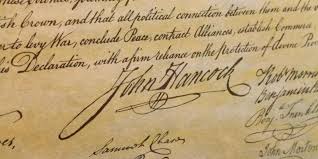 sh Crown, and that all political connection between them and the
to levy War, conclude Peace, contract Alliances, establish Commerce
is Declaration, with a firm reliance on the Protection of divine Prov
John Hancock
Rob Morris
Benjamin
Benj Franklin
Samuel Chase
John Morton